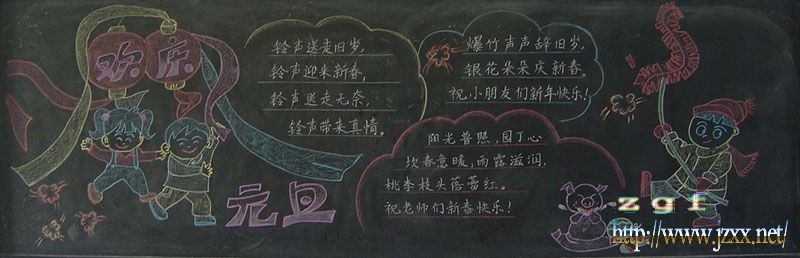 欢庆
元旦
铃声送走旧岁,
铃声迎来新春,
铃声送走无奈,
铃声带来真情。
爆竹声声辞旧岁,
银花朵朵庆新春。
祝小朋友们新年快乐!
阳光普照,园丁心
坎春意暖,雨露滋润,
桃李枝头蓓蕾红。
祝老师们新春快乐!
zgf
http://www.jzxx.net/